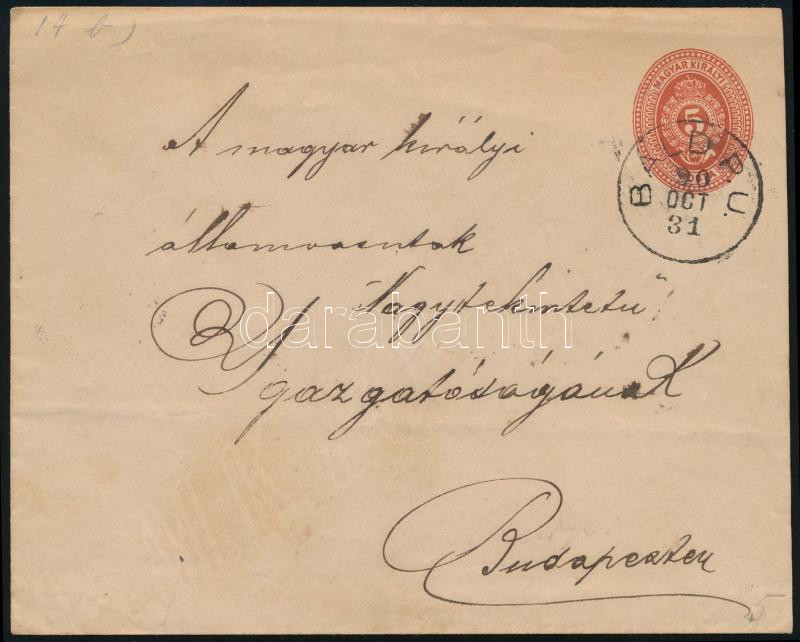 1A b)
MAGYAR KIRÁLYI
5
90
OCT
31
A magyar királyi
államvasutak
"Nagytekintetü"
Igazgatóságának
darabanth
Budapesten
5